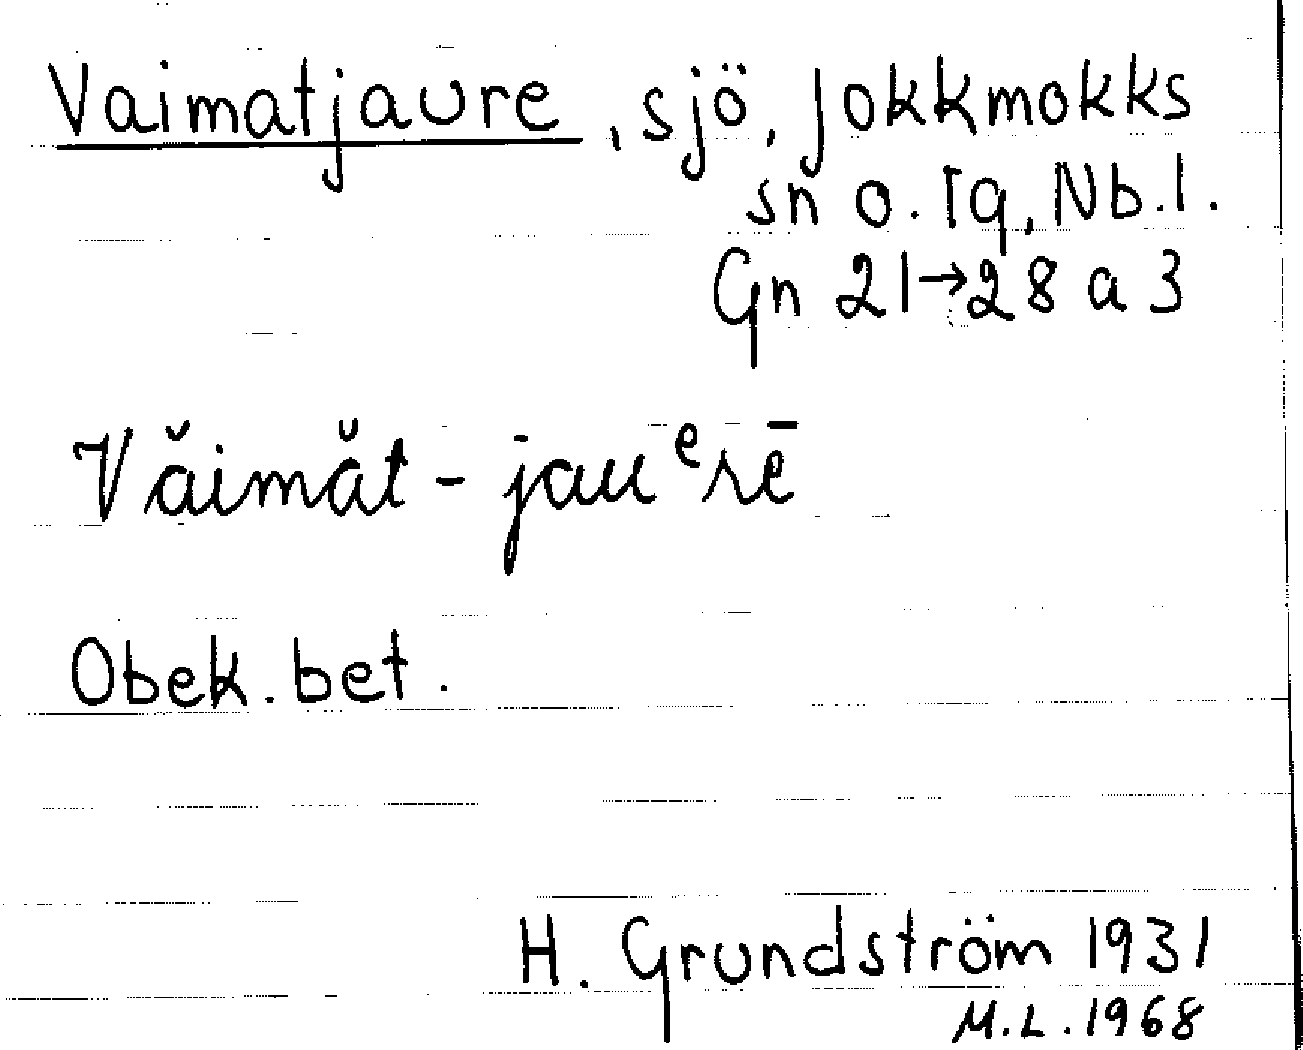 Vaimatjaure, sjö, Jokkmokks
sn o. tg, Nb.l.
Gn 21→28 a 3
Văimăt-jauᵉrē
Obek. bet.
H. Grundström 1931
M.L. 1968